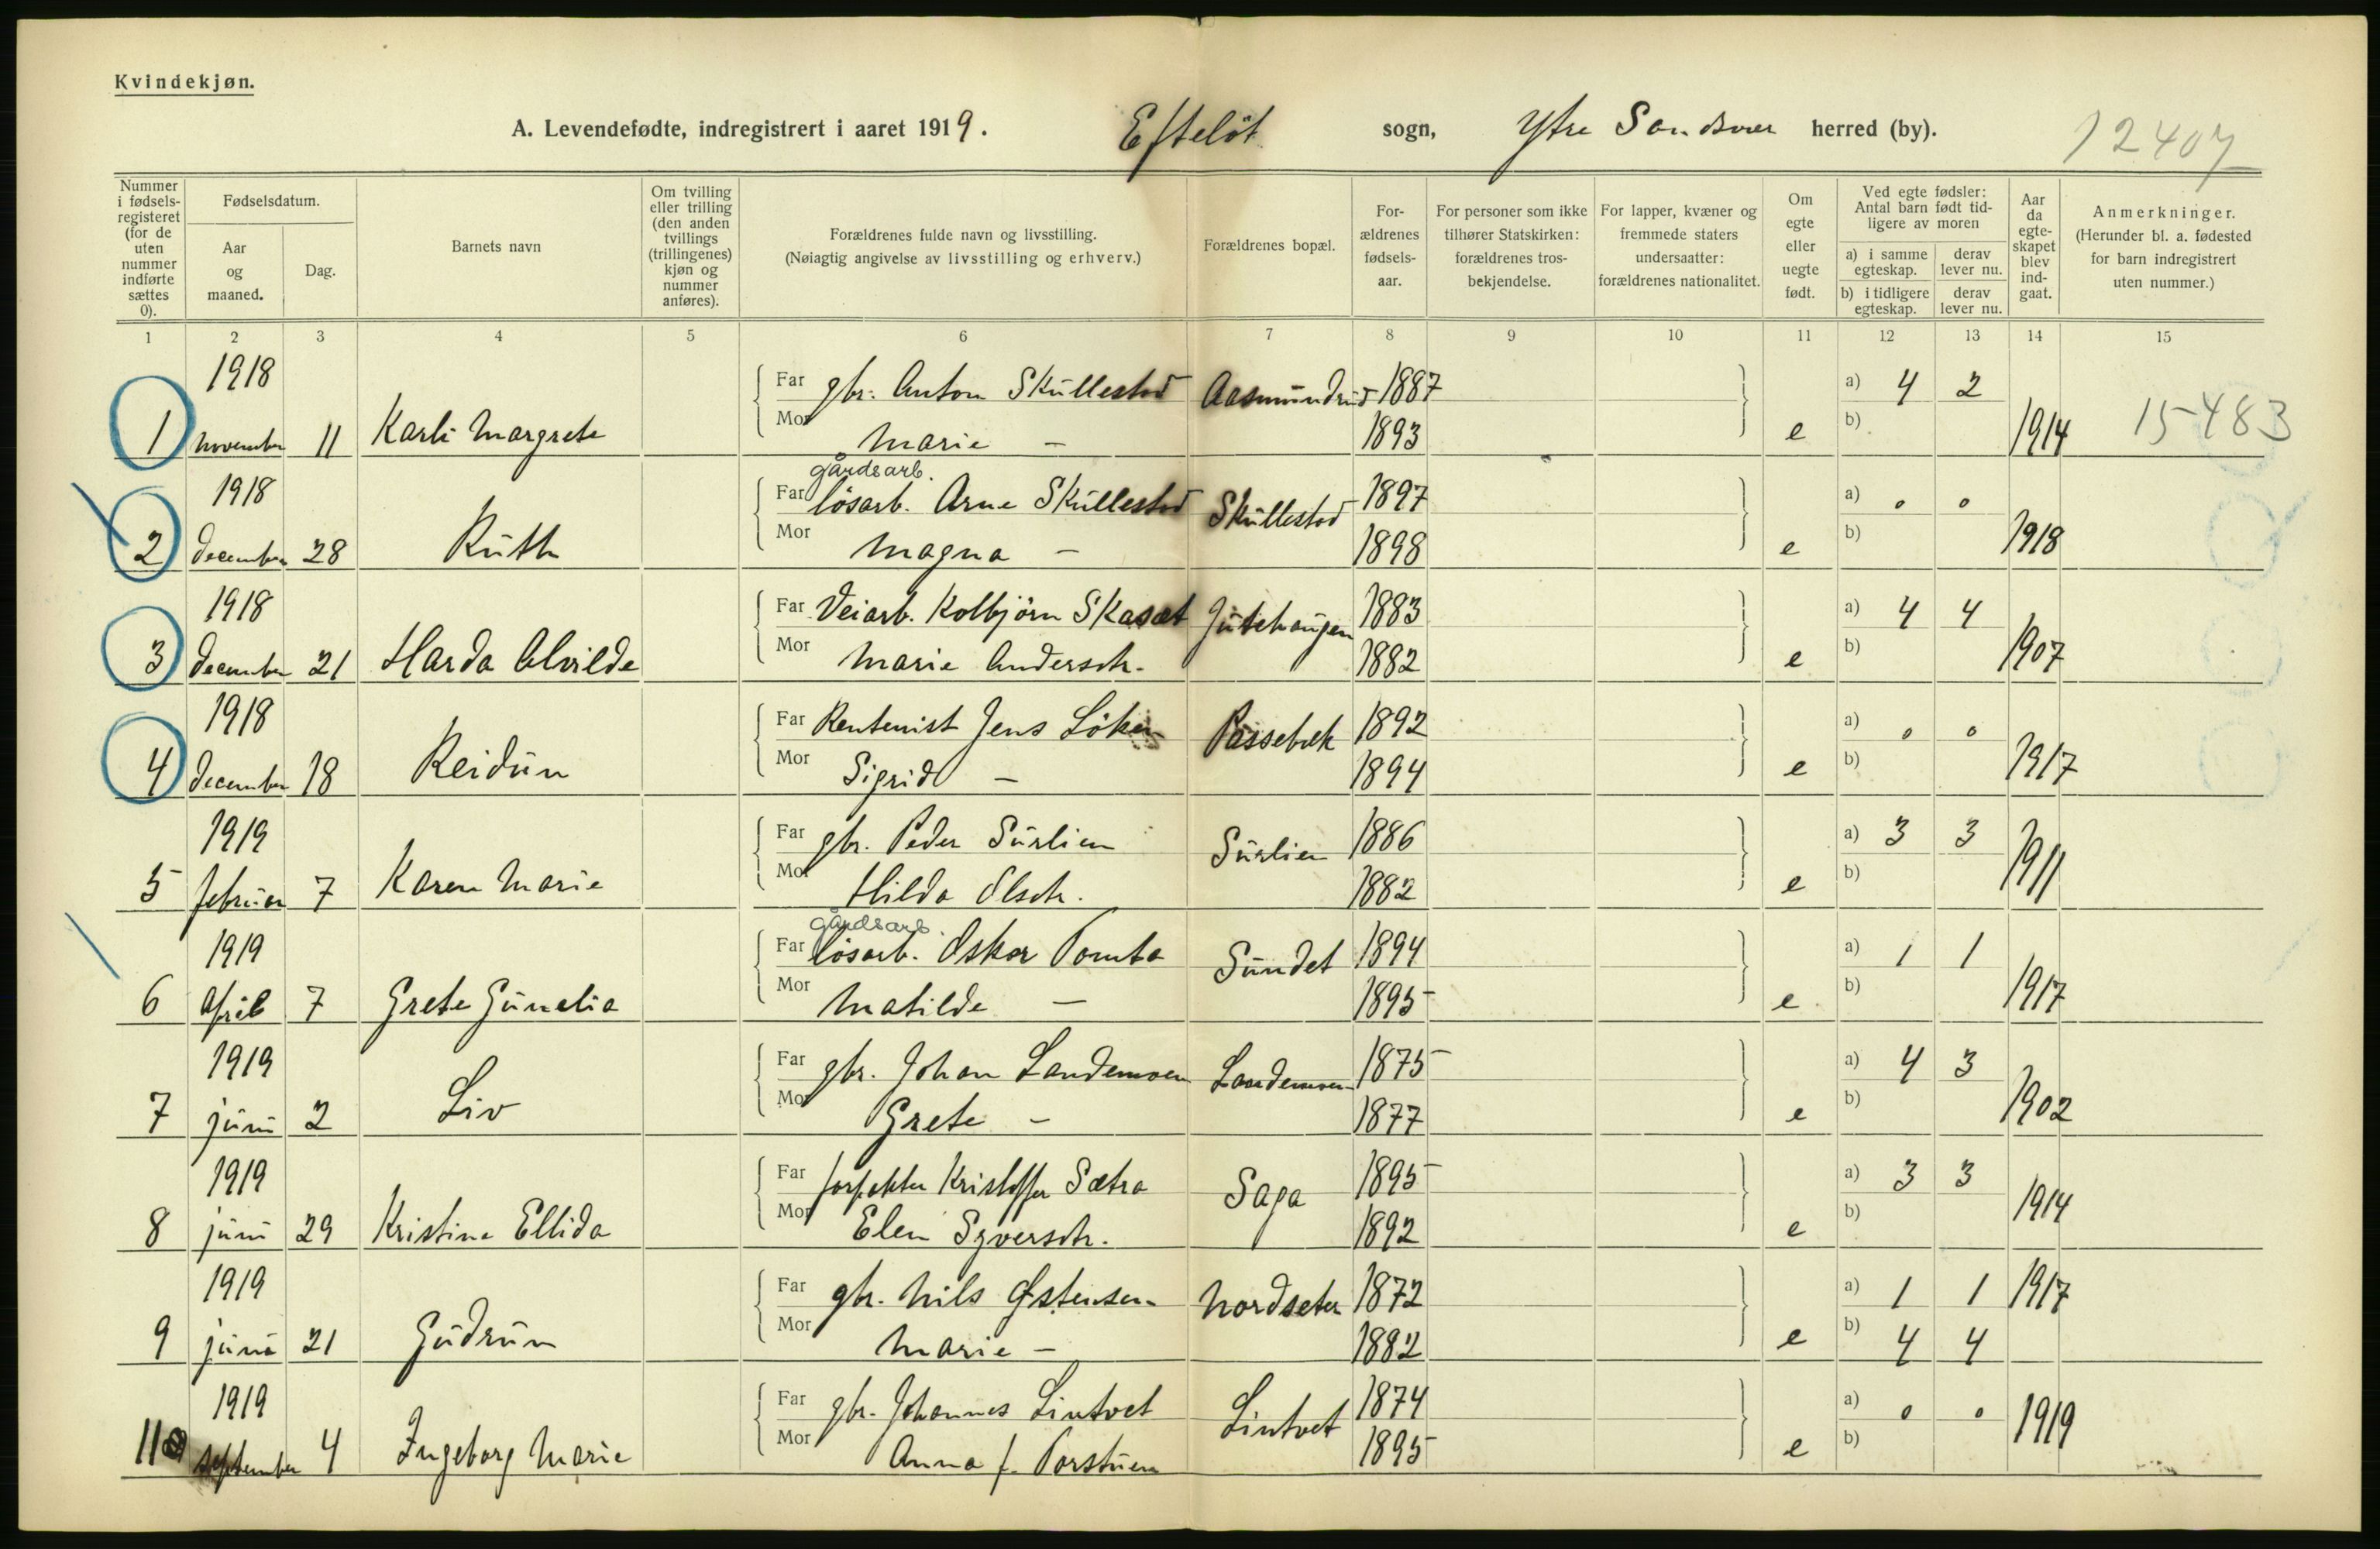 Kvindekjøn.
A. Levendefødte, indregistrert i aaret 1919. Efteløt sogn, Ytre Sandsvær herred (by). 12407
Nummer i fødselsregisteret (for de uten nummer indførte sættes 0).
Fødselsdatum.
Aar og maaned.
Dag.
Barnets navn
Om tvilling eller trilling (den anden tvillings (trillingenes) kjøn og nummer anføres).
Forældrenes fulde navn og livsstilling.
(Nøiagtig angivelse av livsstilling og erhverv.)
Forældrenes bopæl.
For-
ældrenes
fødsels-
aar.
For personer som ikke
tilhører Statskirken:
forældrenes tros-
bekjendelse.
For lapper, kvæner og
fremmede staters
undersaatter:
forældrenes nationalitet.
Om
egte
eller
uegte
født.
Ved egte fødsler:
Antal barn født tid-
ligere av moren
a) i samme egteskap.
derav lever nu.
b) i tidligere egteskap.
derav lever nu.
Aar
da
egte-
skapet
blev
ind-
gaat.
Anmerkninger.
(Herunder bl. a. fødested
for barn indregistrert
uten nummer.)
1 2 3 4 5 6 7 8 9 10 11 12 13 14 15
1918 Far gbr. Anton Skullestad Aasmundrud 1887 a) 4 2
1 november 11 Karli Margrete Mor Marie - 1893 e b) 1914 15483
gårdsarb.
1918 Far løsarb. Arne Skullestad Skullestad 1897 a) 0 0
2 december 28 Ruth Mor Magna - 1898 e b) 1918
1918 Far Veiarb. Kolbjörn Skasæt 1883 a) 4 4
3 december 21 Harda Alvilde Mor Marie Andersdtr. 1882 e b) 1907
1918 Far Rentenist Jens Löken Passebæk 1892 a) 0 0
4 december 18 Reidun Mor Sigrid - 1894 e b) 1917
1919 Far gbr. Peder Surlien Surlien 1886 a) 3 3
5 februar 7 Karen Marie Mor Hilda Olsdtr. 1882 e b) 1911
gårdsarb.
1919 Far løsarb. Oskar Tomta Sundet 1894 a) 1 1
6 april 7 Grete Gunelia Mor Matilde - 1895 e b) 1917
1919 Far gbr. Johan Landemoen Landemoen 1875 a) 4 3
7 juni 2 Liv Mor Grete - 1877 e b) 1902
1919 Far forpakter Kristoffer Sætra Saga 1895 a) 3 3
8 juni 29 Kristine Ellida Mor Elen Syversdtr. 1892 e b) 1914
1919 Far gbr. Nils Østensen Nordseter 1872 a) 1 1 1917
9 juni 21 Gudrun Mor Marie - 1882 e b) 4 4
1919 Far gbr. Johannes Lintvet Lintvet 1874 a) 0 0
11 september 4 Ingeborg Marie Mor Anna f. Torstuen 1895 e b) 1919